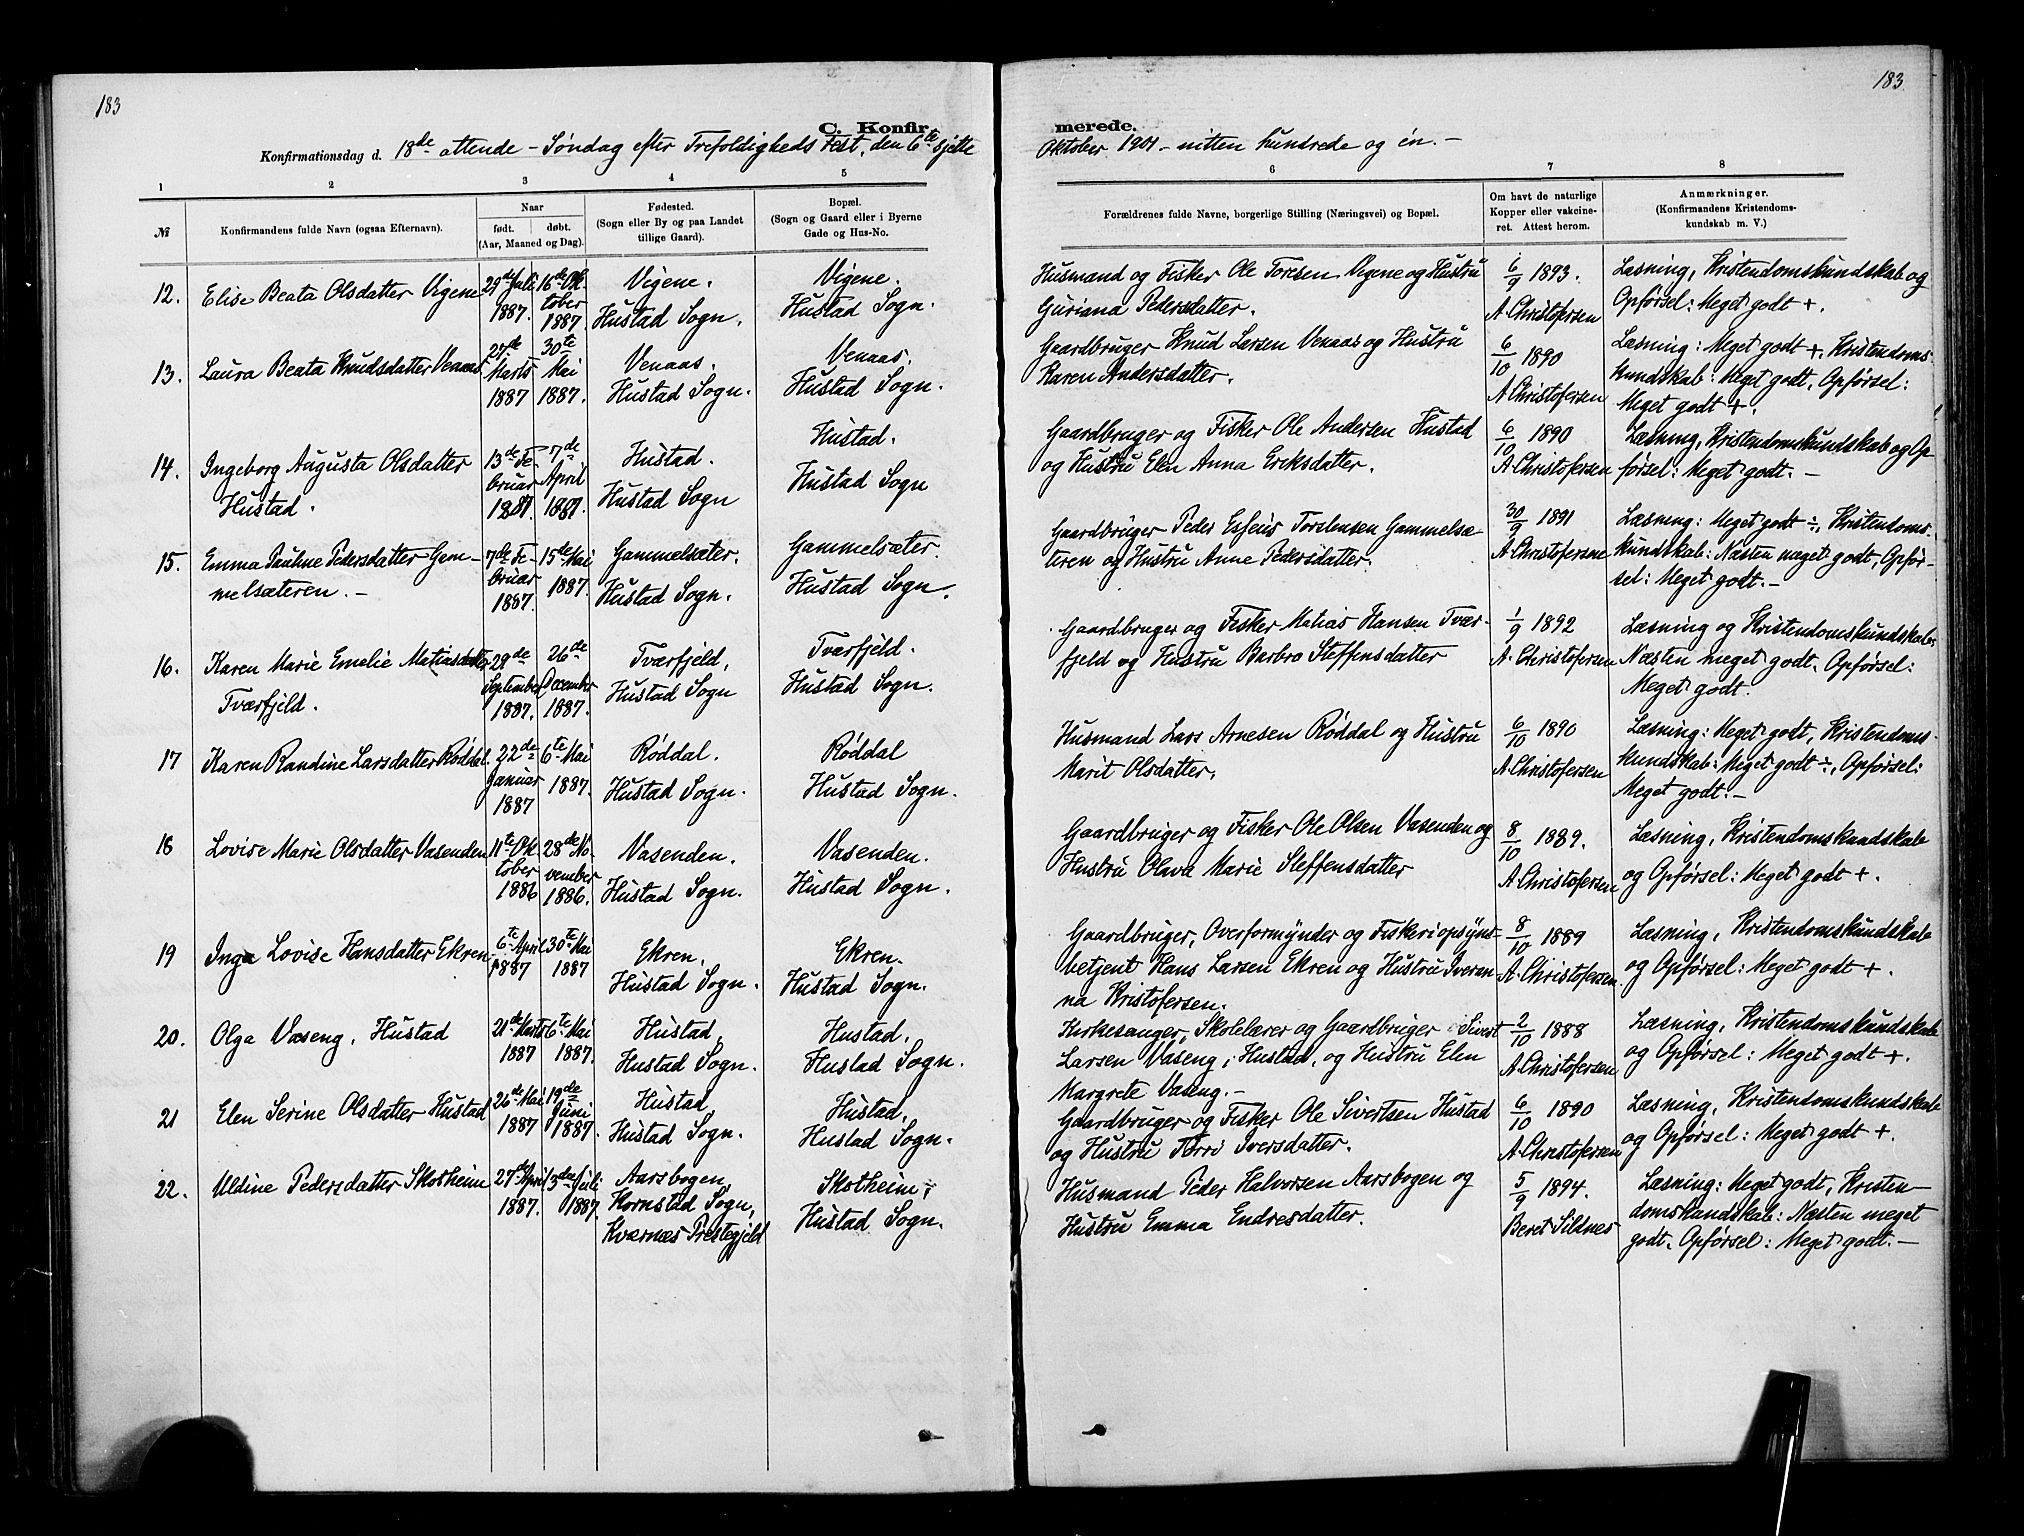 183
183
C. Konfir
merede.
Konfirmationsdag d. 18de attende - Søndag efter Trefoldigheds Fest, den 6te sjette
Oktober 1901 - nitten hundrede og én. -
1
2
3
4
5
6
7
8
№
Konfirmandens fulde Navn (ogsaa Efternavn).
Naar
født. døbt.
(Aar, Maaned og Dag).
Fødested.
(Sogn eller By og paa Landet
tillige Gaard).
Bopæl.
(Sogn og Gaard eller i Byerne
Gade og Hus-No.
Forældrenes fulde Navne, borgerlige Stilling (Næringsvei) og Bopæl.
Om havt de naturlige
Kopper eller vakcine-
ret. Attest herom.
Anmærkninger.
(Konfirmandens Kristendoms-
kundskab m. V.)
12.
Elise Beata Olsdatter Vigene
29de Juli
1887.
16de Ok-
tober
1887
Vigene.
Hustad Sogn.
Vigene.
Hustad Sogn.
Husmand og Fisker Ole Toresen Vigene og Hustru
Guriana Pedersdatter.
6/9 1893.
A. Christofersen
Læsning, Kristendomskundskab og
Opførsel: Meget godt +.
13.
Laura Beata Knudsdatter Venaas
Marts
1887
30te
Mai
1887.
Venaas.
Hustad Sogn.
Venaas.
Hustad Sogn.
Gaardbruger Knud Larsen Venaas og Hustru
Karen Andersdatter.
6/10 1890
A. Christofersen
Læsning: Meget godt +, Kristendoms-
kundskab: Meget godt, Opførsel:
Meget godt +.
14.
Ingeborg Augusta Olsdatter
Hustad.
13de Fe-
bruar
1887.
17de
April
1887.
Hustad.
Hustad Sogn
Hustad.
Hustad Sogn
Gaardbruger og Fisker Ole Andersen Hustad
og Hustru Elen Anna Eriksdatter.
6/10 1890
A. Christofersen
Læsning, Kristendomskundskab og Op-
førsel: Meget godt. -
15.
Emma Pauline Pedersdatter Gam-
melsæteren. -
7de Fe-
bruar
1887.
15de Mai
1887.
Gammelsæter.
Hustad Sogn.
Gammelsæter.
Hustad Sogn.
Gaardbruger Peder Torstensen Gammelsæ-
teren og Hustru Anne Pedersdatter.
30/9 1891
A. Christofersen
Læsning: Meget godt ÷, Kristendoms-
kundskab: Næsten meget godt, Opfør-
sel: Meget godt. -
16.
Karen Marie Emelie Matiasdatter
Tværfjeld.
29de
September
1887.
26de
December
1887.
Tværfjeld,
Hustad Sogn
Tværfjeld.
Hustad Sogn.
Gaardbruger og Fisker Matias Hansen Tvær-
fjeld og Hustru Barbro Steffensdatter
1/9 1892
A. Christofersen
Læsning og Kristendomskundskab:
Næsten meget godt. Opførsel:
Meget godt.
17
Karen Randine Larsdatter Røddal.
22de
Januar
1887
6te Mai
1887.
Røddal.
Hustad Sogn.
Røddal
Hustad Sogn.
Husmand Lars Arnesen Røddal og Hustru
Marit Olsdatter.
6/10 1890
A. Christofersen
Læsning: Meget godt, Kristendoms-
kundskab: Meget godt ÷, Opførsel:
Meget godt. -
18
Lovise Marie Olsdatter Vasenden
11te Ok-
tober
1886
28de No-
vember
1886.
Vasenden.
Hustad Sogn.
Vasenden.
Hustad Sogn.
Gaardbruger og Fisker Ole Olsen Vasenden og
Hustru Olava Marie Steffensdatter
8/10 1889.
A. Christofersen
Læsning, Kristendomskundskab
og Opførsel: Meget godt +.
19
Inga Lovise Hansdatter Ekren
6te April
1887
30te Mai
1887
Ekren,
Hustad Sogn.
Ekren.
Hustad Sogn.
Gaardbruger, Overformynder og Fiskeriopsyns-
betjent Hans Larsen Ekren og Hustru Iveran-
na Kristofersen.
8/10 1889
A. Christofersen.
Læsning, Kristendomskundskab
og Opførsel: Meget godt +.
20.
Olga Vaseng, Hustad
21de Marts
1887
6te Mai
1887.
Hustad,
Hustad Sogn.
Hustad,
Hustad Sogn.
Kirkesanger, Skolelærer og Gaardbruger Sivert
Larsen Vaseng, Hustad, og Hustru Elen
Margrete Vaseng. -
2/10 1888
A. Christofersen
Læsning, Kristendomskundskab
og Opførsel: Meget godt +.
21
Elen Serine Olsdatter Hustad
26de Mai
1887
19de
Juni
1887.
Hustad,
Hustad Sogn.
Hustad,
Hustad Sogn.
Gaardbruger og Fisker Ole Sivertsen Hustad
og Hustru Iversdatter.
6/10 1890
A. Christofersen
Læsning, Kristendomskundskab
og Opførsel: Meget godt +.
22.
Uldine Pedersdatter Skotheim
27de April
1887.
3die Juli
1887.
Aarsbogen,
Kornstad Sogn,
Kværnæs Prestegjeld
Skotheim,
Hustad Sogn.
Husmand Peder Halvorsen Aarsbogen og
Hustru Emma Endresdatter.
5/9 1894.
Beret Sildnes
Læsning: Meget godt, Kristen-
domskundskab: Næsten meget
godt. Opførsel: Meget godt. -